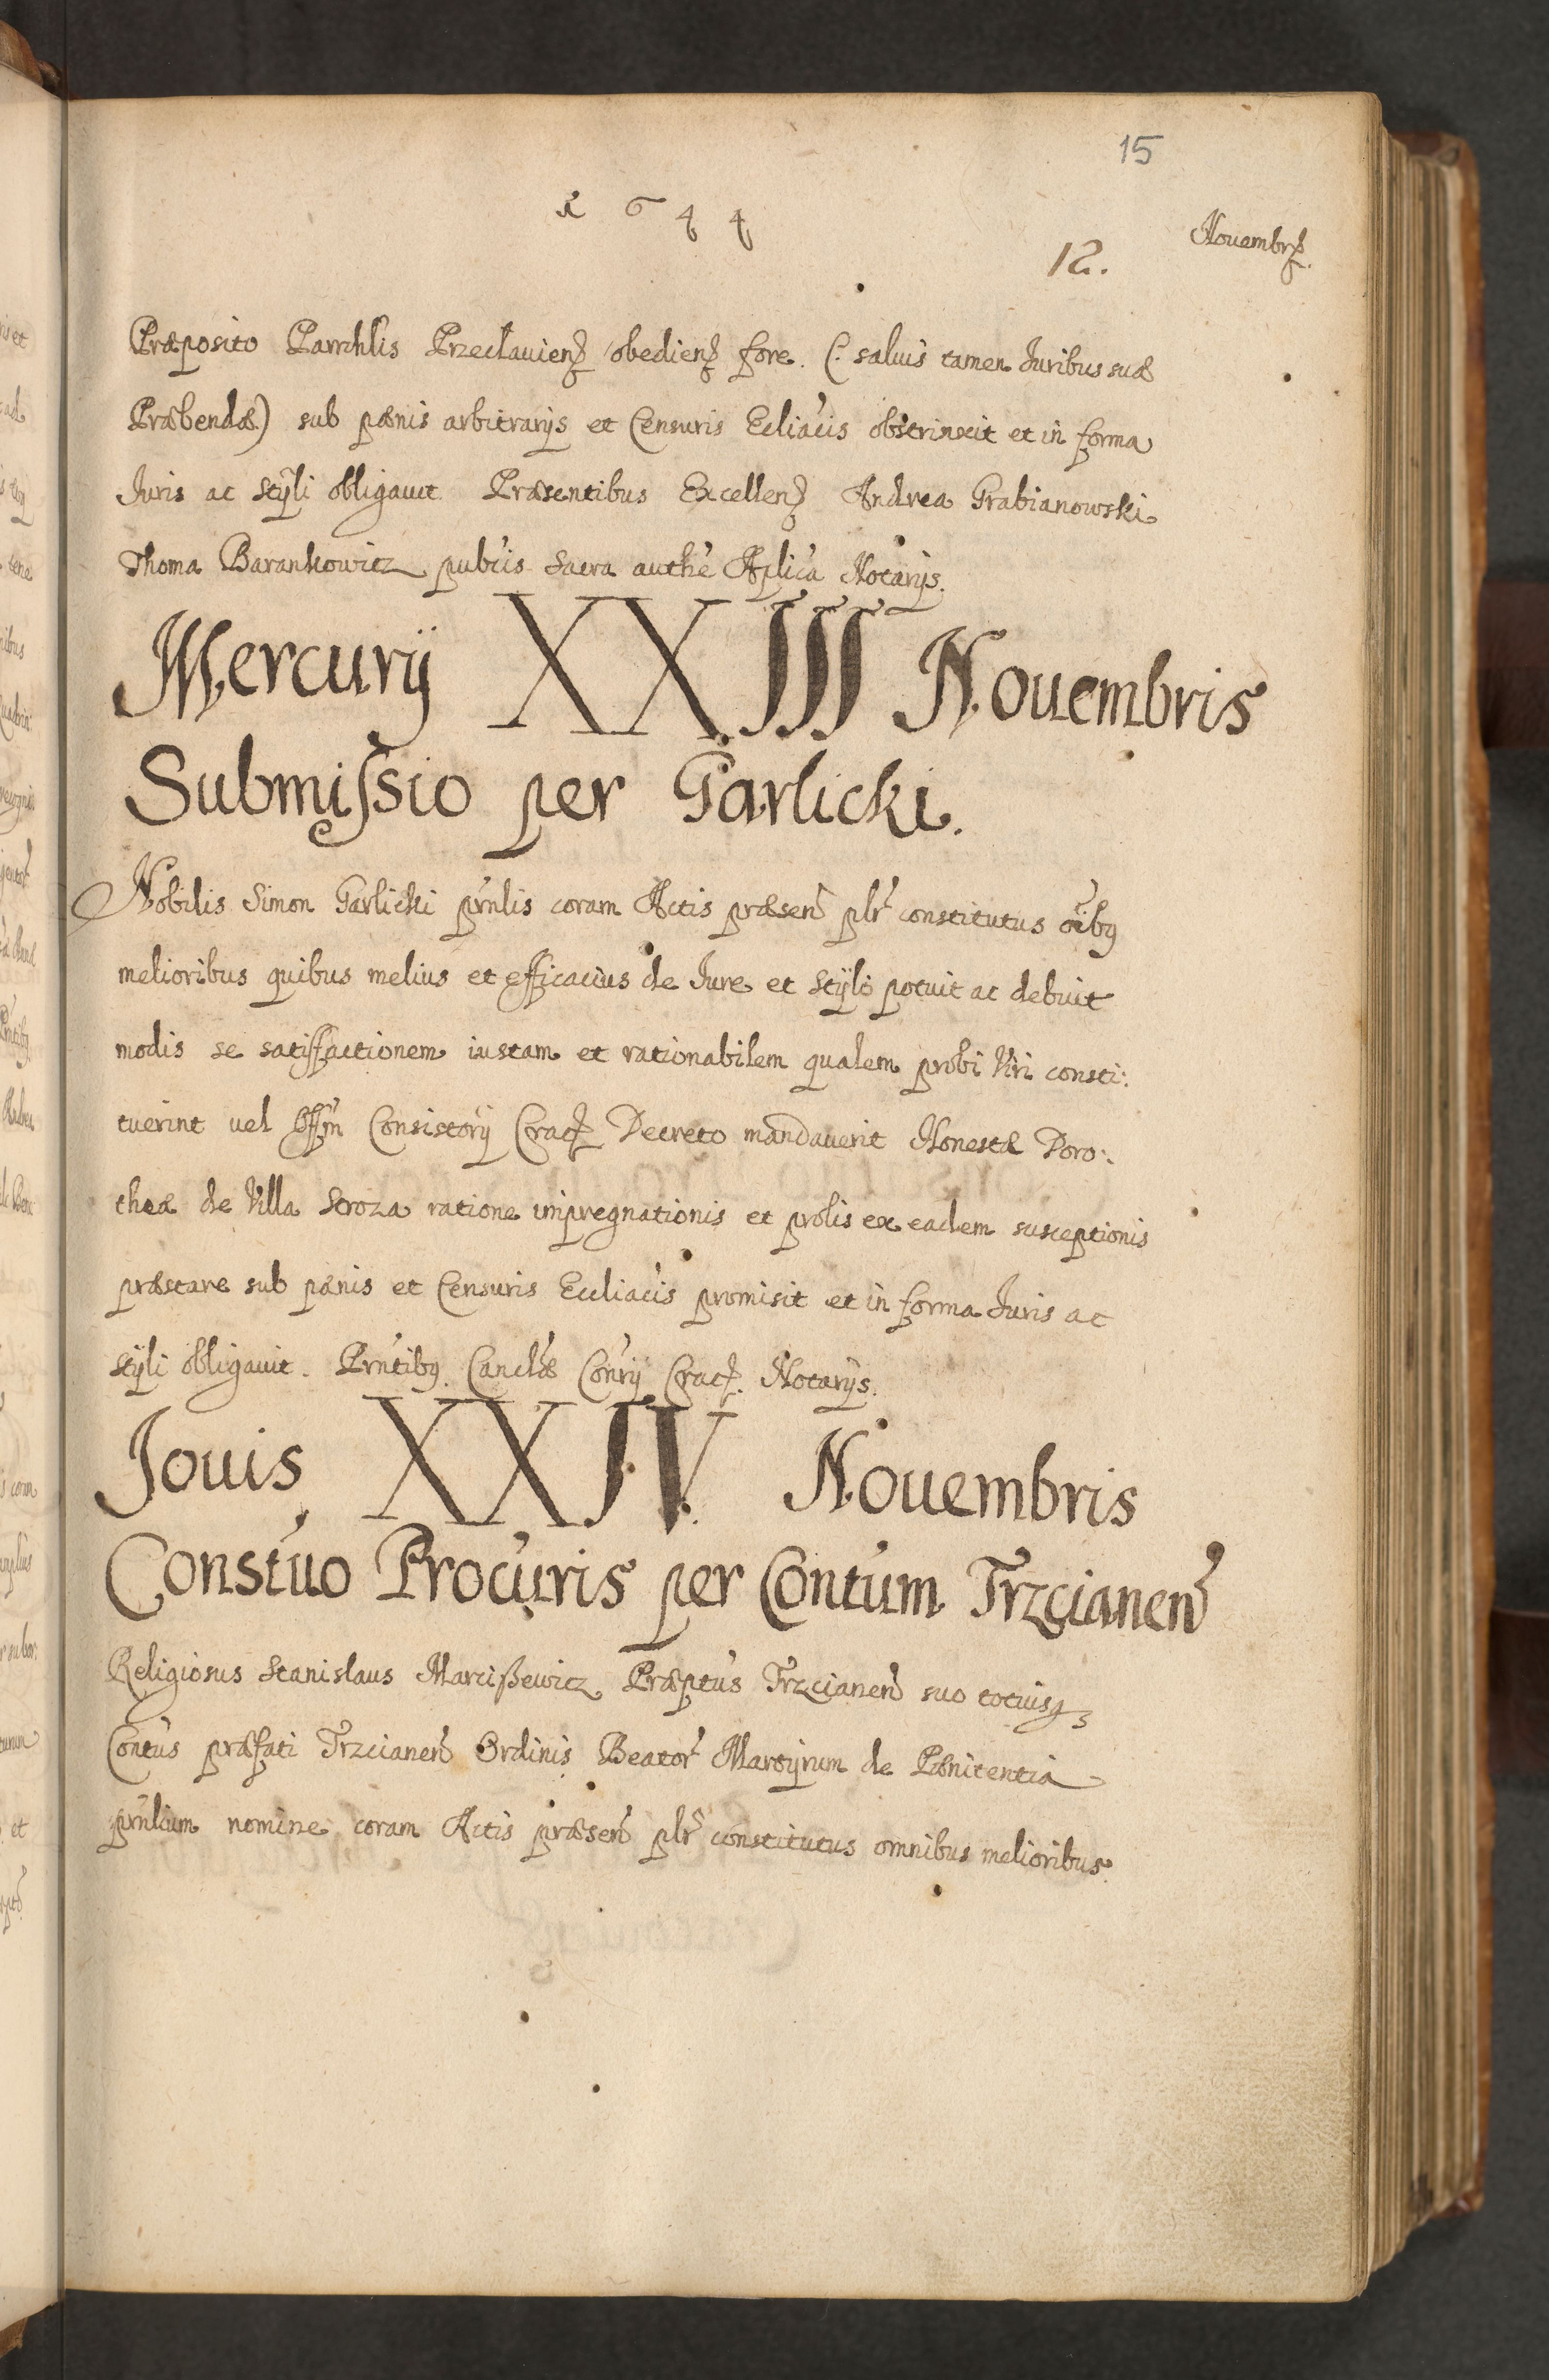 15
1644
12.
Nouembrꝭ.
Præposito Parrchlis Przeclauienꝭ obedienꝭ fore. (: saluis tamen Iuribus suæ
Præbendæ) sub pænis arbitrarijs et Censuris Eccliacis obstrinxit et in forma
Iuris ac styli obligauit. Præsentibus Excellenꝭ Andrea Grabianowski
Thoma Barankowicz pubcis Sacra authe Aplica Notarijs.
Mercurij XXIII Nouembris
Submiſsio per Garlicki.
Nobilis Simon Garlicki prnlis coram Actis præsen plr constitutus oibꝰ
melioribus quibus melius et efficacius de Iure et stÿlo potuit ac debuit
modis se satisfactionem iustam et rationabilem qualem probi Viri consti:
tuerint uel Offm Consistorij Cracꝭ Decreto mandauerit Honestæ Doro:
theæ de Villa Stroza ratione impregnationis et prolis ex eadem susceptionis
præstare sub pænis et Censuris Eccliacis promisit et in forma Iuris ac
stÿli obligauit. Prntibꝰ Canclæ Conrij Cracꝭ. Notarijs.
Jouis XXIV Nouembris
Constuo Procuris per Contum Trzcianen
Religiosus Stanislaus Marcißewicz Præptus Trzcianen suo totiusqꝫ
Contus præfati Trzcianen Ordinis Beator Martÿrum de Pænitentia
prnlium nomine coram Actis præsen plr constitutus omnibus melioribus